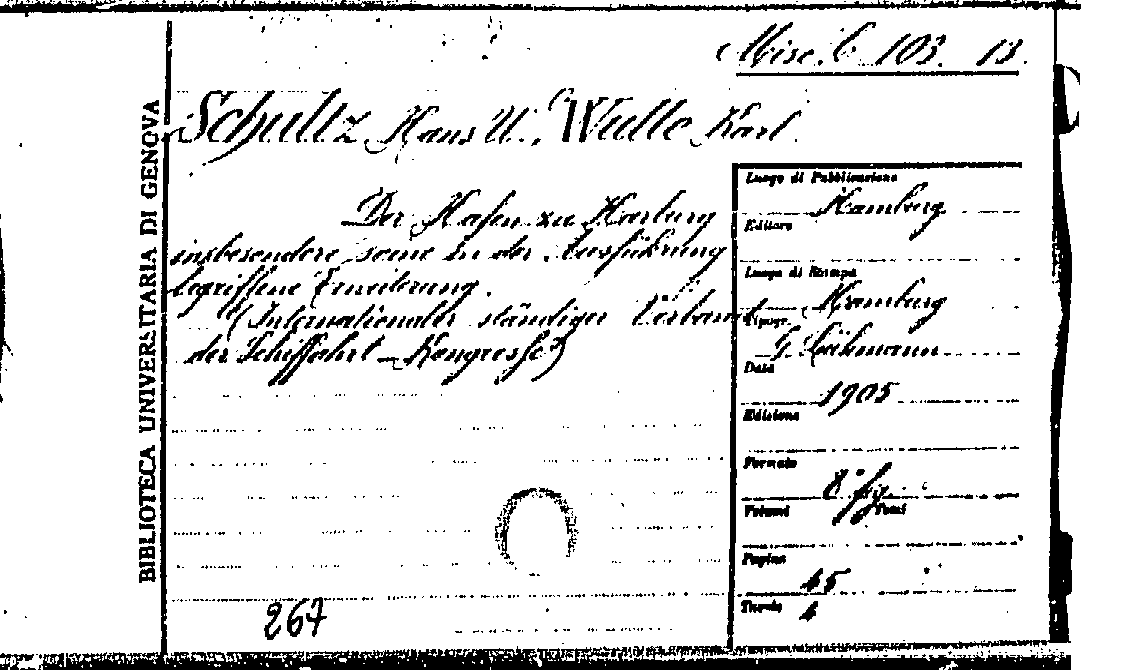 Misc. C 103. 13.
BIBLIOTECA UNIVERSITARIA DI GENOVA
Schultz Hans U., Wulle Karl.
Der Hafen zu Harburg
insbesondere seine in der Ausführung
begriffene Erweiterung.
(Internationaler ständiger Verband
der Schiffahrt-Kongresse)
Luogo di Pubblicazione
Hamburg
Editore
Luogo di Stampa
Hamburg
Tipogr.
G.
Data
1905
Edizione
Formato
8° fig.
Volumi Tomi
Pagine
45
Tavole 4
267